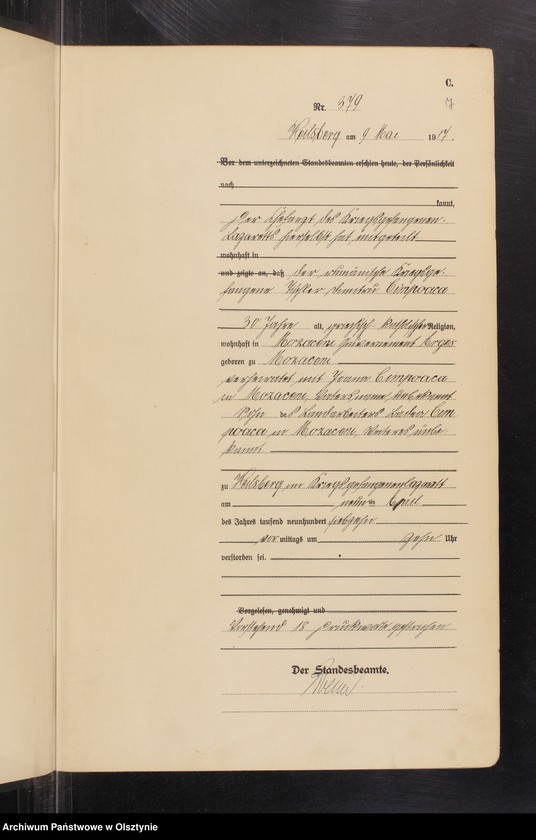 C.
7
Nr. 379
Heilsberg am 9 Mai 1917.
Vor dem unterzeichneten Standesbeamten erschien heute, der Persönlichkeit
nach
kannt,
Der Chefarzt des Kriegsgefangenen-
Lazaretts hierselbst hat mitgeteilt
wohnhaft in
und zeigte an, daß der rumänische Kriegsge-
fangene Dimitru Cimpoaca
30 Jahre alt, griechisch-katholischer Religion,
wohnhaft in Mozaceni Guvernement Arges
geboren zu Mozaceni
verheiratet mit Joana Cimpoaca
in Mozaceni, Weiteres unbekannt
Sohn des Landarbeiters Cim
poaca in Mozaceni, Weiteres unbe
kannt
zu Heilsberg im Kriegsgefangenenlazarett
am neunten April
des Jahres tausend neunhundert siebzehn
vor mittags um zehn Uhr
verstorben sei.
Vorgelesen, genehmigt und
Vorstehend 18 Druckworte gestrichen
Der Standesbeamte.
Archiwum Państwowe w Olsztynie